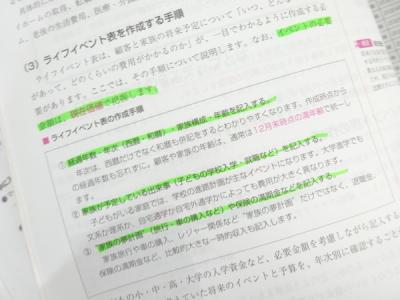 イホームの取得、転
ム、老後の生活費用、医療・介
（3）ライフイベント表を作成する手順
ライフイベント表は、顧客と家族の将来予定について「いつ、どん
があって、どのくらいの費用がかかるのか」が、一目でわかるように作成する必
要があります。ここでは、その手順について説明します。なお、イベントの必要
金額は、現在価値で把握します。
■ライフイベント表の作成手順
① 経過年数・年次（西暦・和暦）、家族構成・年齢を記入する。
年次は、西暦だけでなく和暦も併記をするとわかりやすくなります。作成時点から
の経過年数も忘れずに。顧客や家族の年齢は、通常は12月末時点の満年齢で統一し
ます。
② 家族が予定している出来事（子どもの学校入学・就職など）を記入する。
子どもがいる家庭では、学校の進路計画が主なイベントになります。大学進学でも
文系か理系か、自宅通学か自宅外通学かによっても費用が大きく異なります。
③ “家族の夢計画”（旅行・車の購入など）や保険の満期金などを記入する。
家族旅行や車の購入、レジャー関係など“家族の夢計画”だけではなく、退職金、
保険の満期金など、比較的大きな一時的収入も記入します。
の小・中・高・大学の入学資金など、必要金額を考慮しながら記入する
えていた将来のイベントと予算を、年次別に確認すること